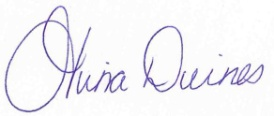 Olivia Dwines